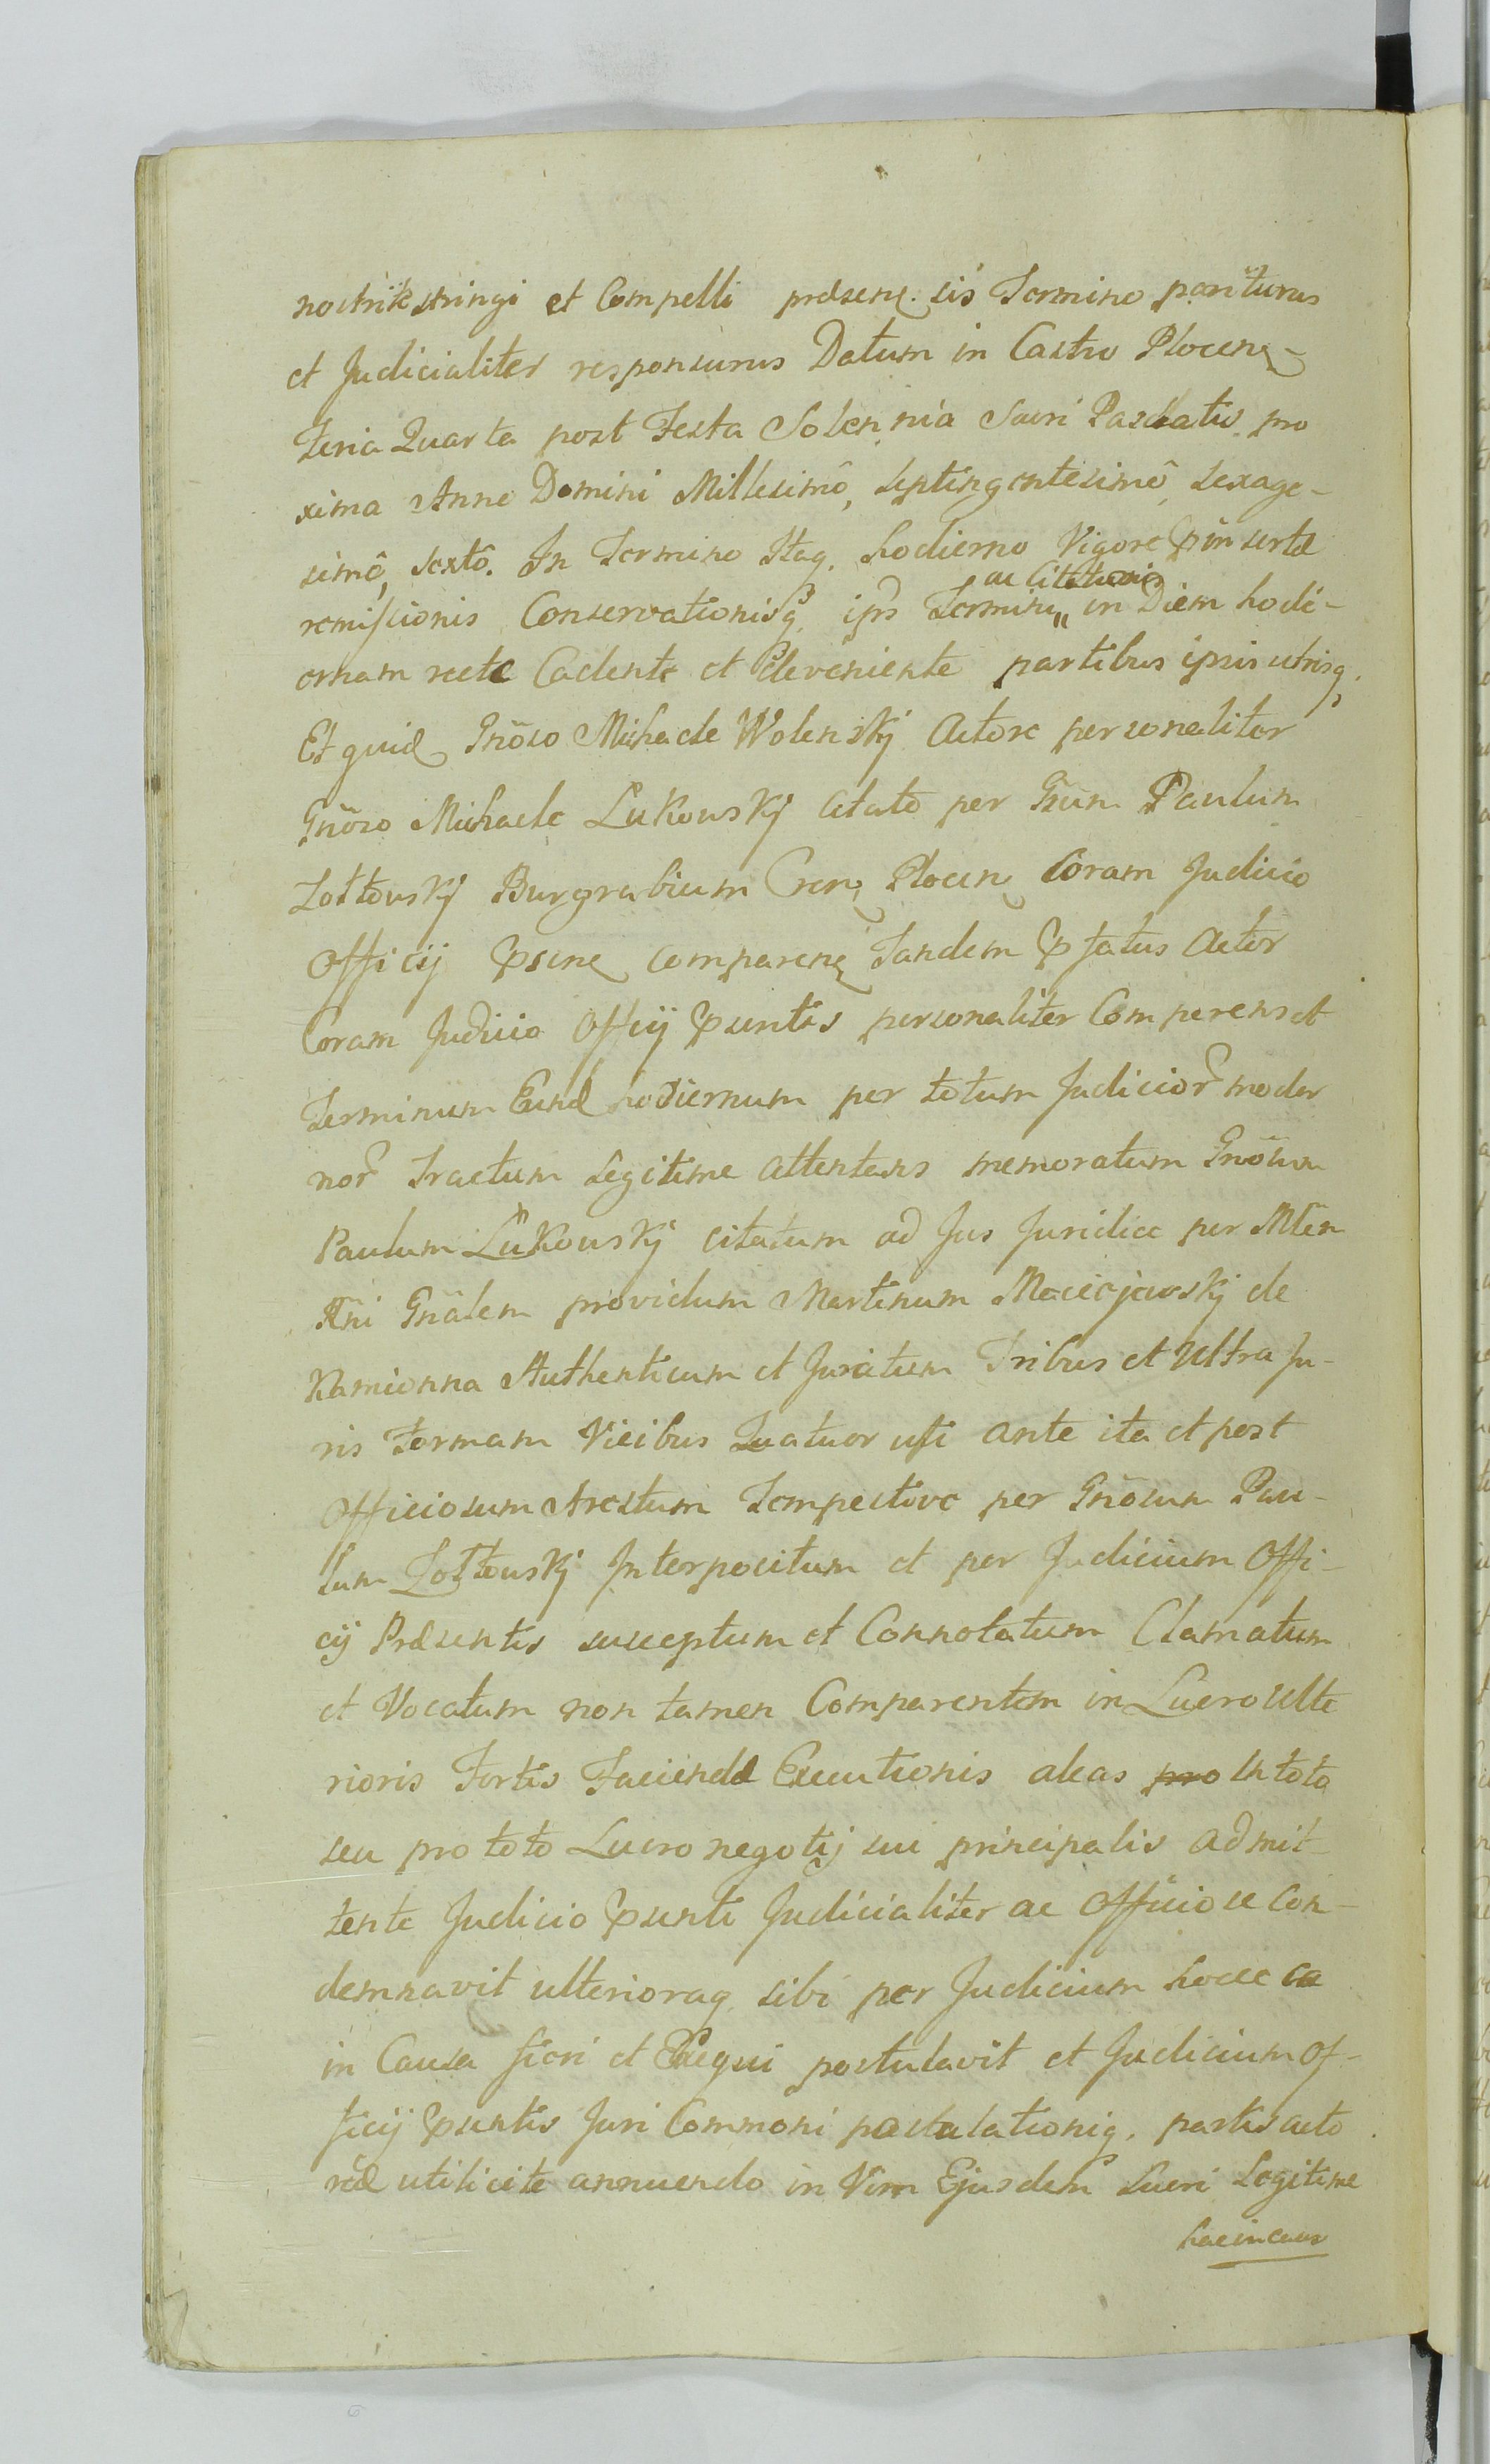 stringi et Compelli præsenę. sis Termino pariturus
et Judicialiter responsurus Datum in Castro Plocenę
Feria Quarta post Festa Solennia Sacri Paschatis pro
xima Anno Domini Millesimô, septingentesimô, sexage-
simô, sextô. In Termino Itaq. hodierno Vigore insertæ
remissionis Conservationisq. ipŝ Termini ac Citationis in Diem hodi-
ernam recte Cadente et deveniente partibus ipsis utrisq.
Et quid Gnõso Michaele Wolenskÿ Actore personaliter
Gnõso Michaele Lukowskÿ Citato per Gñm Paulum
Zottowskÿ Burgrabium Cren, Plocen, Coram Judicio
Officÿ psene comparenę Tandem pfatus Actor
Coram Judicio Officÿ psentis personaliter Comparens et
Terminum Eund hodiernum per totum Judicior moder
nor Tractum Legitime attentans memoratum Gnõsum
Paulum Lukowskÿ citatum ad Jus Juridice per Mlẽm
Rñi Gñalem providum Martinum Maciejewskÿ de
Kamionna Authenticum et Juratum Tribus et Ultra Ju-
ris Formam Vicibus Quatuor uti ante ita et post
Officiosum Arestum Tempestive per Gnõsum Pau-
lum Zottowskÿ Interpositum et per Judicium Offi-
cÿ Præsentis susceptum et Connotatum Clamatum
et Vocatum non tamen Comparentem in Lucro Ulte
rioris Fortis Faciendæ Executionis aleas pro In toto
seu pro toto Lucro negotÿ sui principalis admit
tente Judicio psenti Judicialiter ac Officiose Con-
demnavit ulterioraq. sibi per Judicium hocce ca
in Causa fieri et Exequi postulavit et Judicium Of-
ficÿ psentis Juri Commoni postulationiq. partis acto
reæ utilicite annuendo in Vim Ejusdem Lucri Legitime
hac in caus